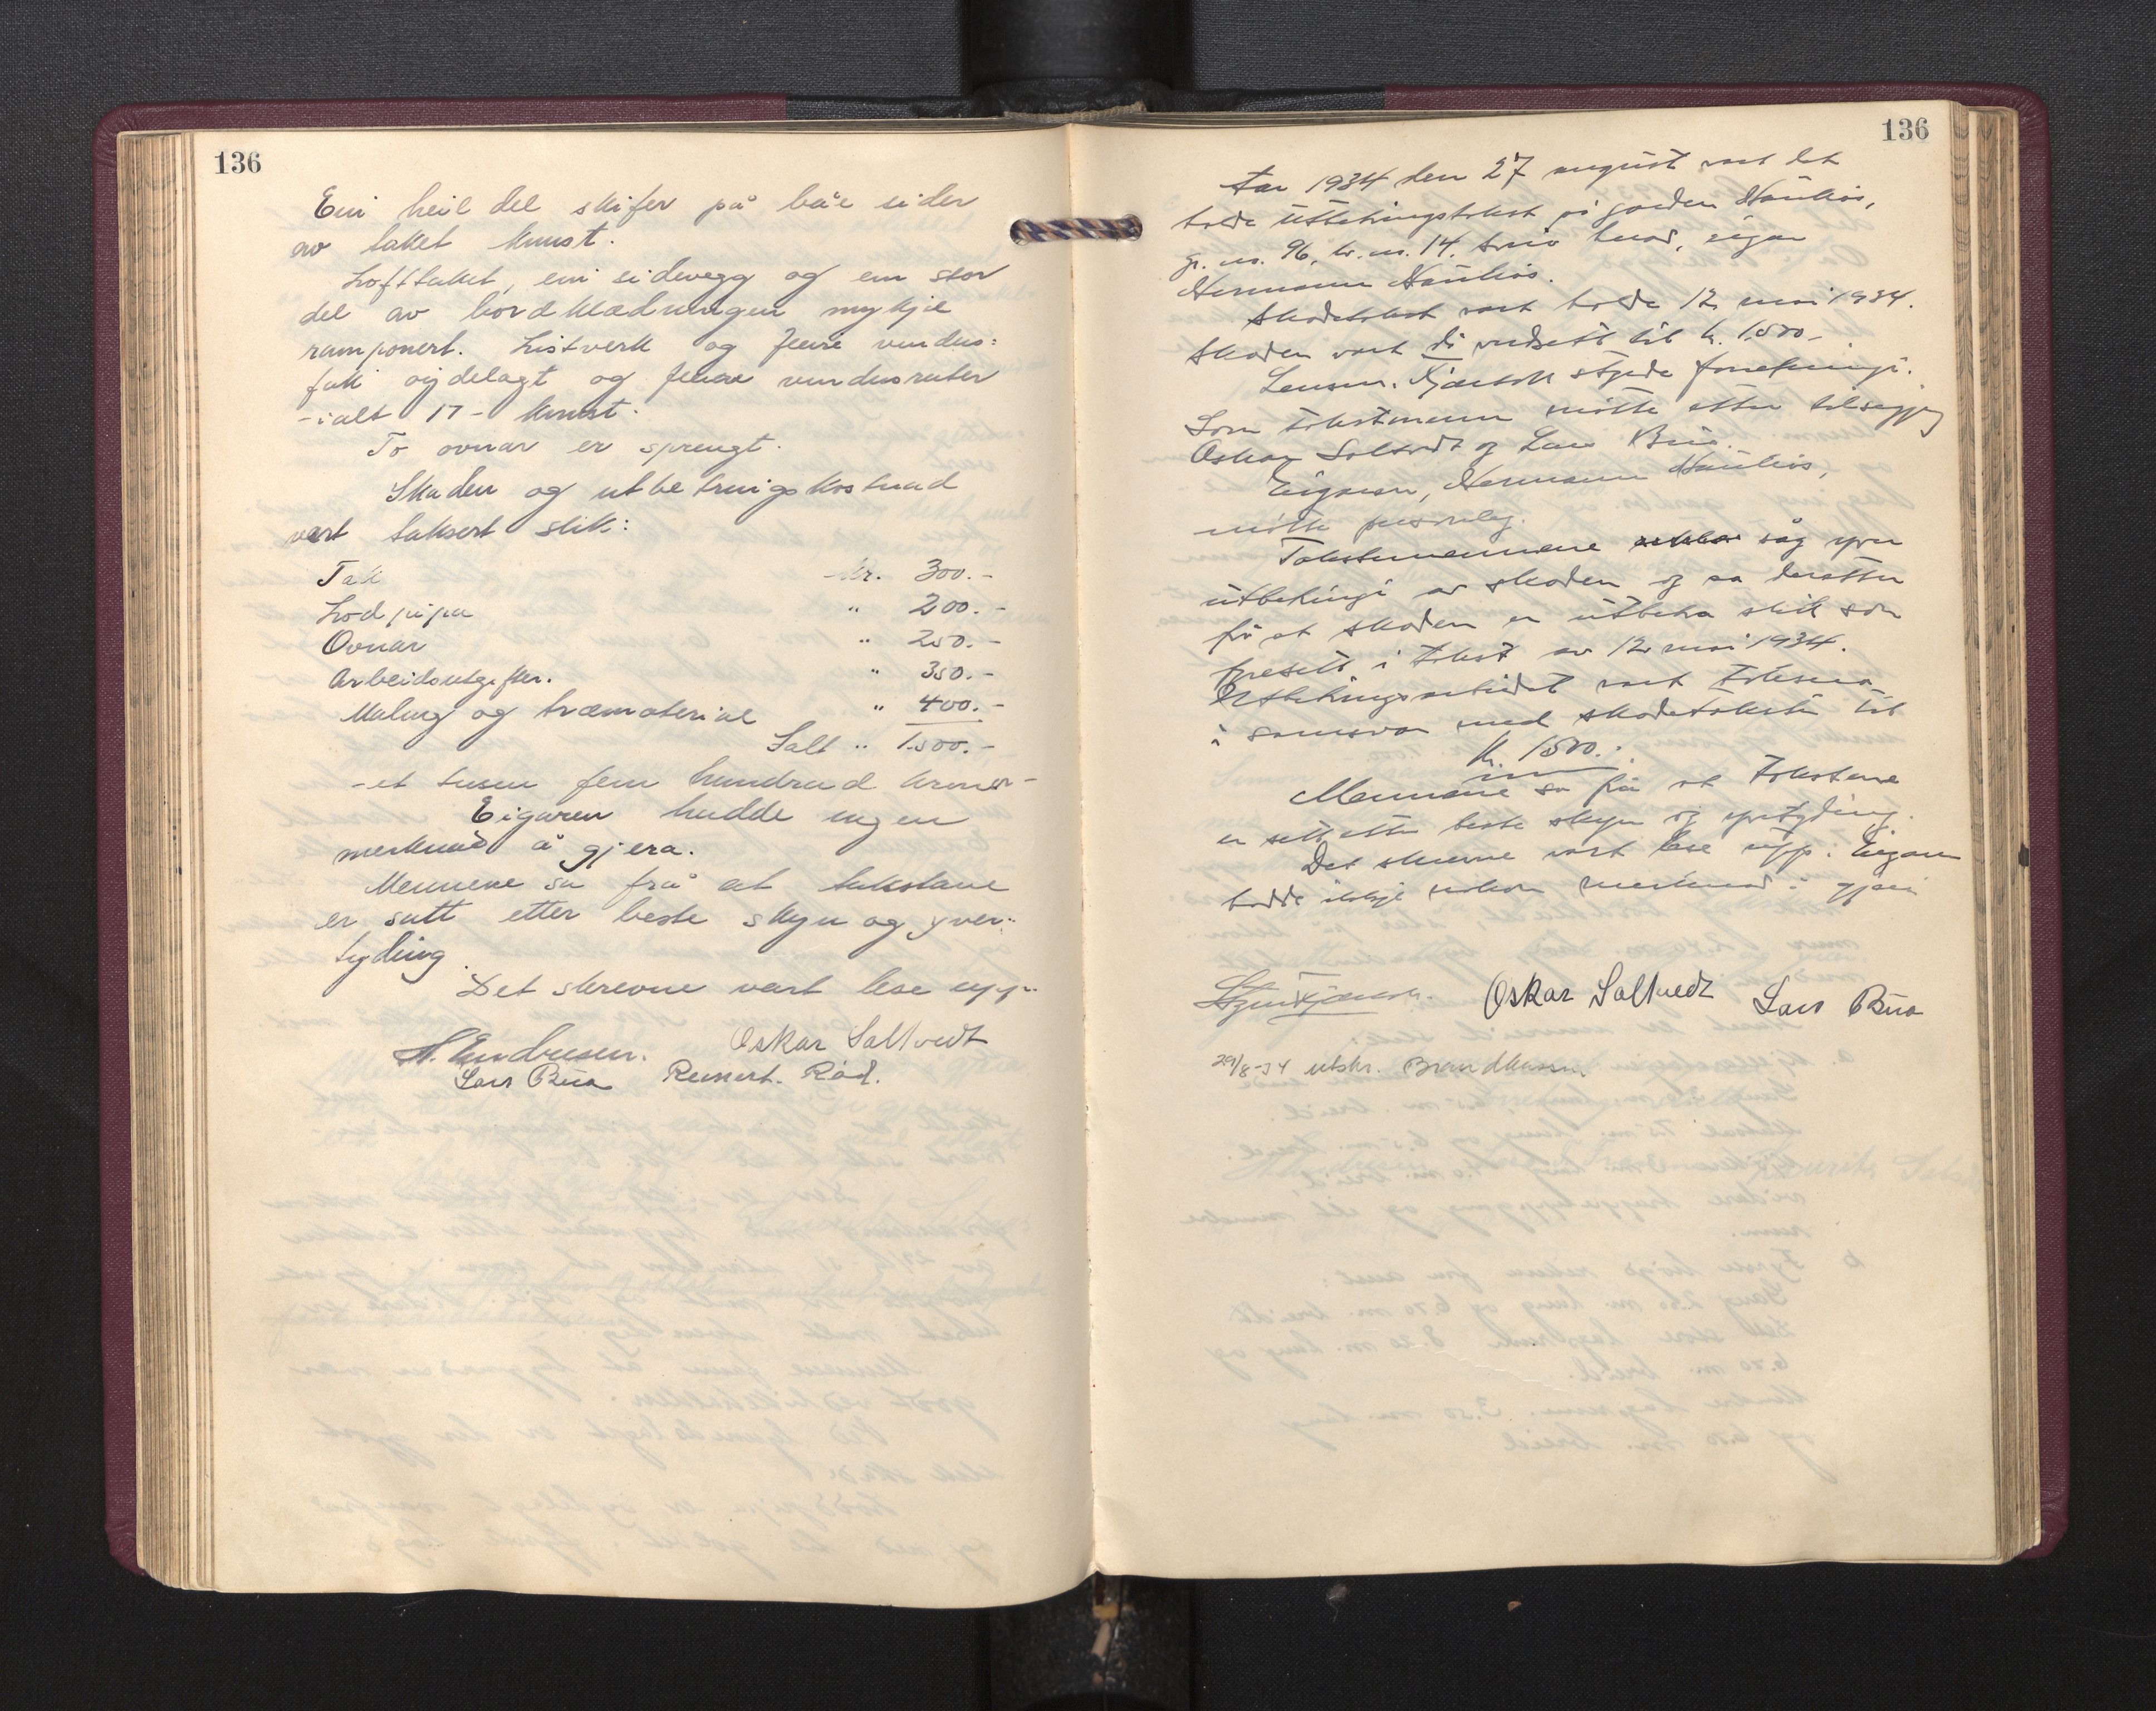 136
Ein heil del skifer på båe sider
av taket knust.
Lofttaket, ein sidevegg og ein stor
del av bordklædningen mykje
ramponert. Listverk og fleire vindus=
fak øydelagt og fleire vindusruter
- ialt 17 - knust.
To ovnar er sprengt.
Skaden og utbetringskostnad
vart taksert slik:
Tak kr. 300.-
Lodpipa " 200.-
Ovnar " 250.-
Arbeidsutgifter. " 350.-
Maling og træmaterial " 400.-
Ialt " 1.500.-
- et tusen fem hundrad kroner -
Eigaren hadde ingen
merknad å gjera.
Mennene sa frå at takstane
er satt etter beste skyn og yver=
tyding.
Det skrevne vart lese upp.
H. Endresen. Oskar Saltvedt
Lars Bua Reinert. Rød.
136
Aar 1934 den 27 august vart det
halde utbetringstakst på garden Haukås,
gr. nr. 96, br. nr. 14, herad, eigar
Hermann Haukås.
Skadetakst vart halde 12 mai 1934.
Skaden vart då verdsett til kr. 1500.-
Lensm. Kjærbok styrde forretningi.
Som takstmenn møtte etter tilseging
Oskar Saltvedt og Lars Bua.
Eigaren, Hermann Haukås,
møtte personleg.
Takstmennene såg yver
utbetringi av skaden og sa deretter
frå at skaden er utbetra slik som
fyresett i takst av 12 mai 1934.
Utbetringsarbeidet vart taksera
i samsvar med skadetaksten til
kr. 1500.-
Mennene sa frå at takstene
er sett etter beste skyn og yvertyding.
Det skrevne vart lese upp. Eigaren
hadde ikkje nokon merknad å gjera
Oskar Saltvedt Lars Bua
29/8-34 utskr. Brandkassen.